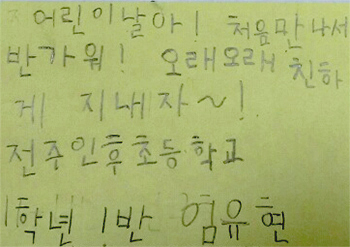 어린이날아! 처음만나서
반가워! 오래오래 친하
게 지내자~!
전주인후초등학교
1학년 1반 엄유현